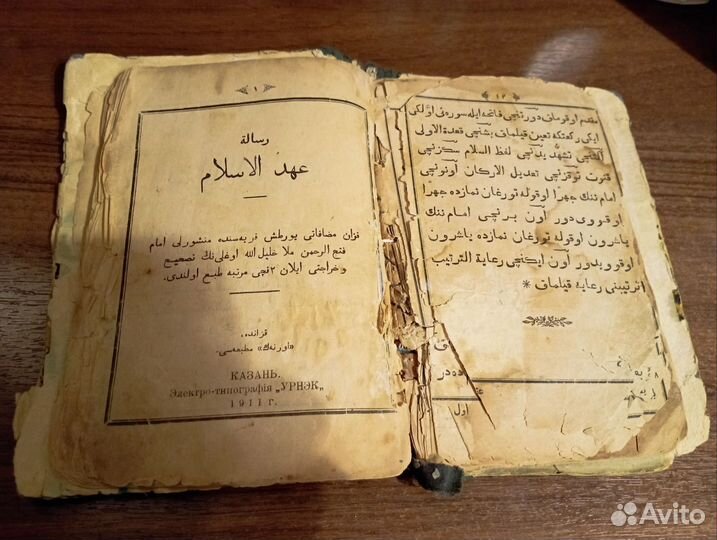 ١
رسالة
عهد الاسلام
قزان مضافاتى پورطش قريه‌سنده منشورلى امام
فتح الرحمن ملا خليل الله اوغلى‌نڭ تصحيح
و خراجتى ايلان ٢نچى مرتبه طبع اولندى.
قزانده.
«اورنەك» مطبعه‌سى.
КАЗАНЬ.
Электро-типографія „УРНЭК“
1911 г.
١٢
مقدم اوقوماق دورتنچى فاتحه ايله سوره‌نى اوّلكى
ايكى ركعتكه تعيين قيلماق بشنچى قعدة الاولى
آلتنچى تشهّد يدنچى لفظ السلام سكزنچى
قنوت توقزنچى تعديل الاركان اوننچى
امام ننك جهرا اوقوله تورغان نمازده جهرا
اوقووى‌دور اون برنچى امام ننك
ياشرون اوقوله تورغان نمازده ياشرون
اوقوويدور اون ايكنچى رعاية الترتيب
ترتيبنى رعاية قيلماق *
اول
Avito